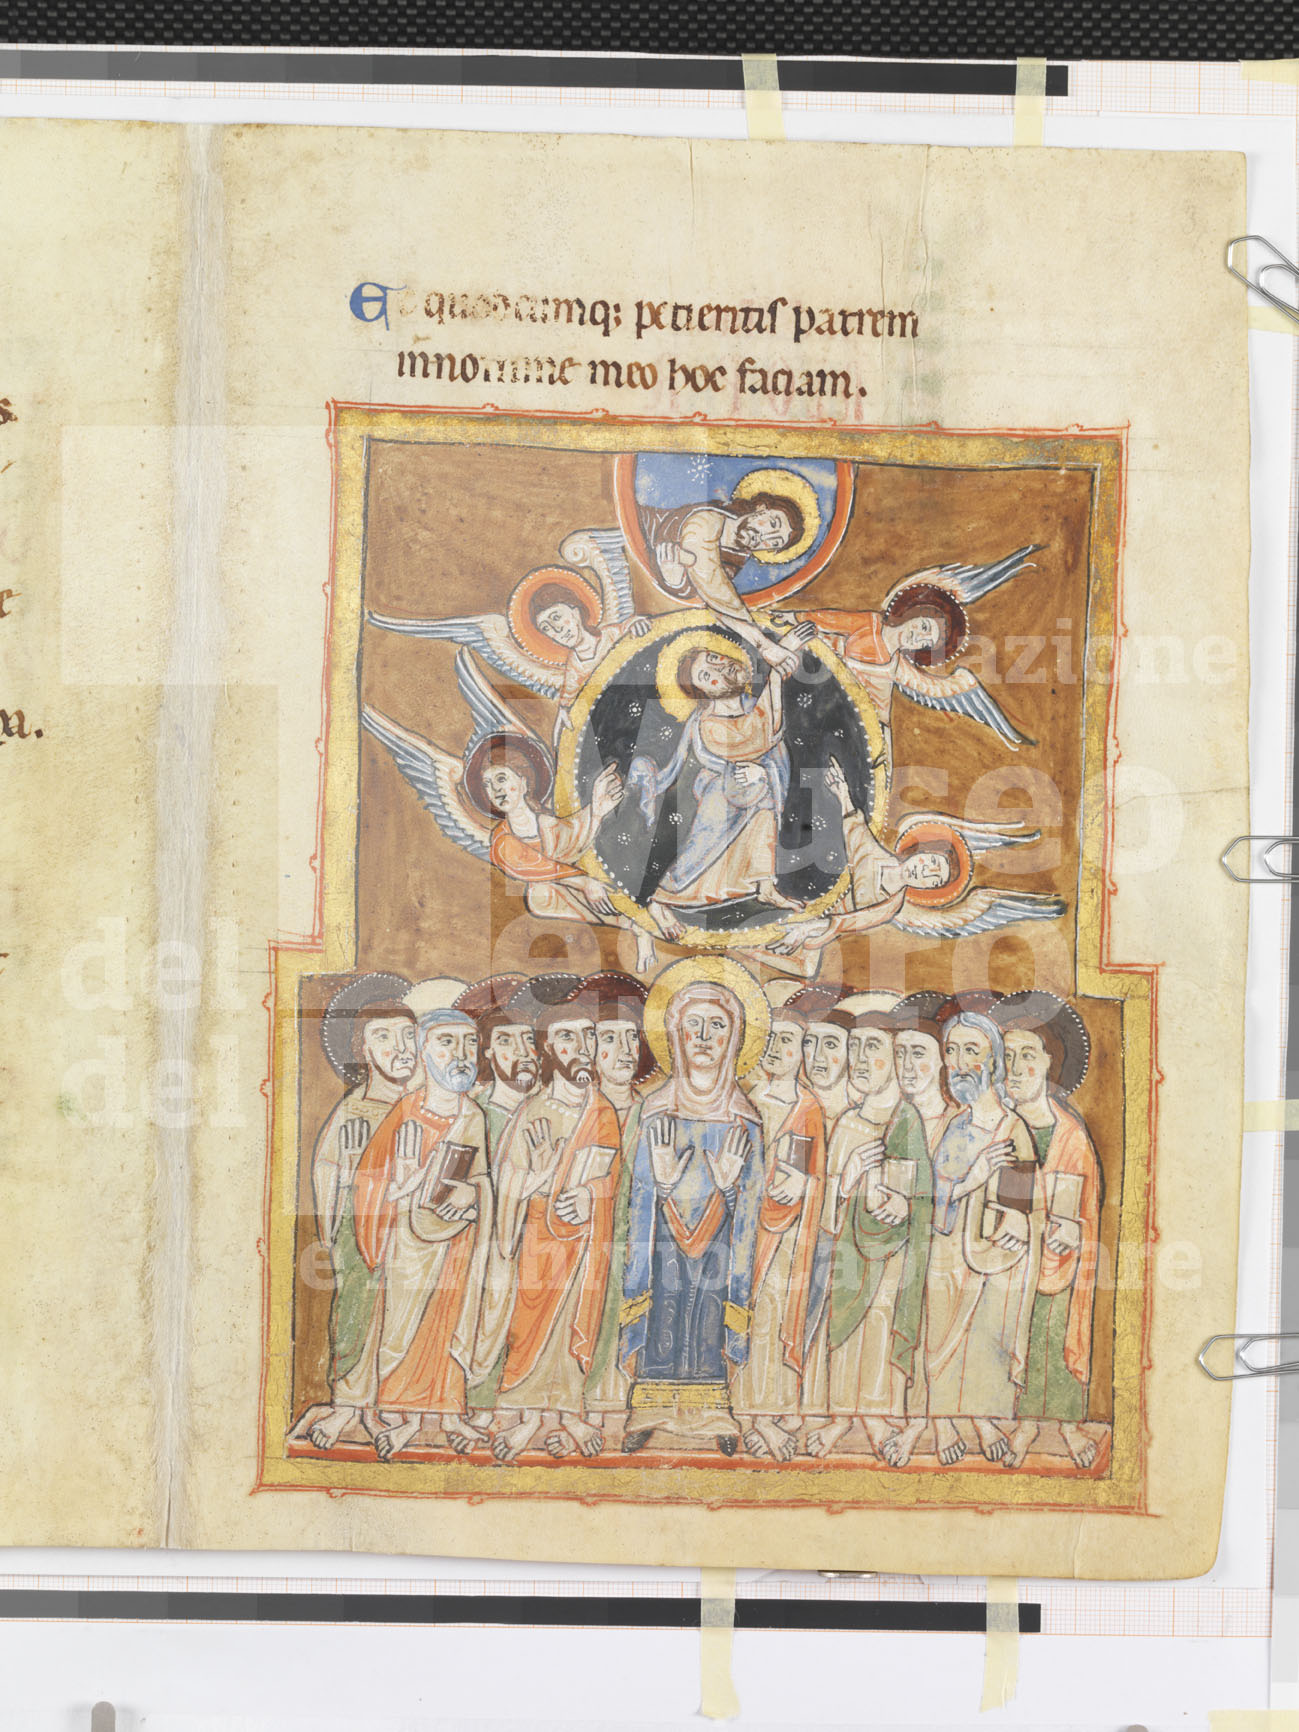 Et quodcumq; petieritis patrem
innomine meo hoc faciam.
s.
e
na.
Fondazione
Museo
del Tesoro
del Duomo
e Archivio Capitolare